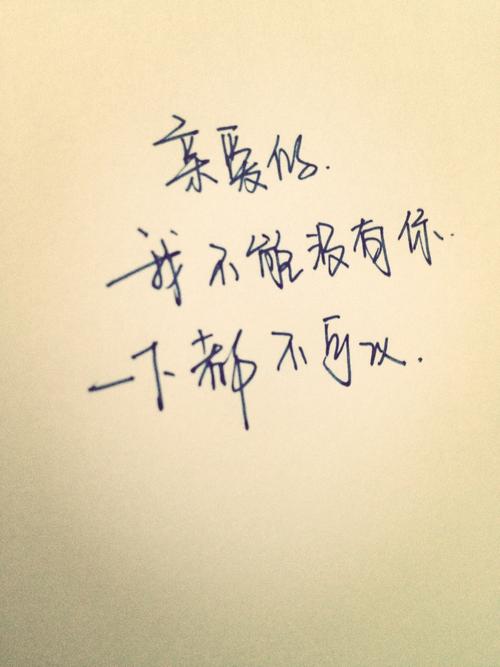 亲爱的.
我不能没有你.
一下都不可以.